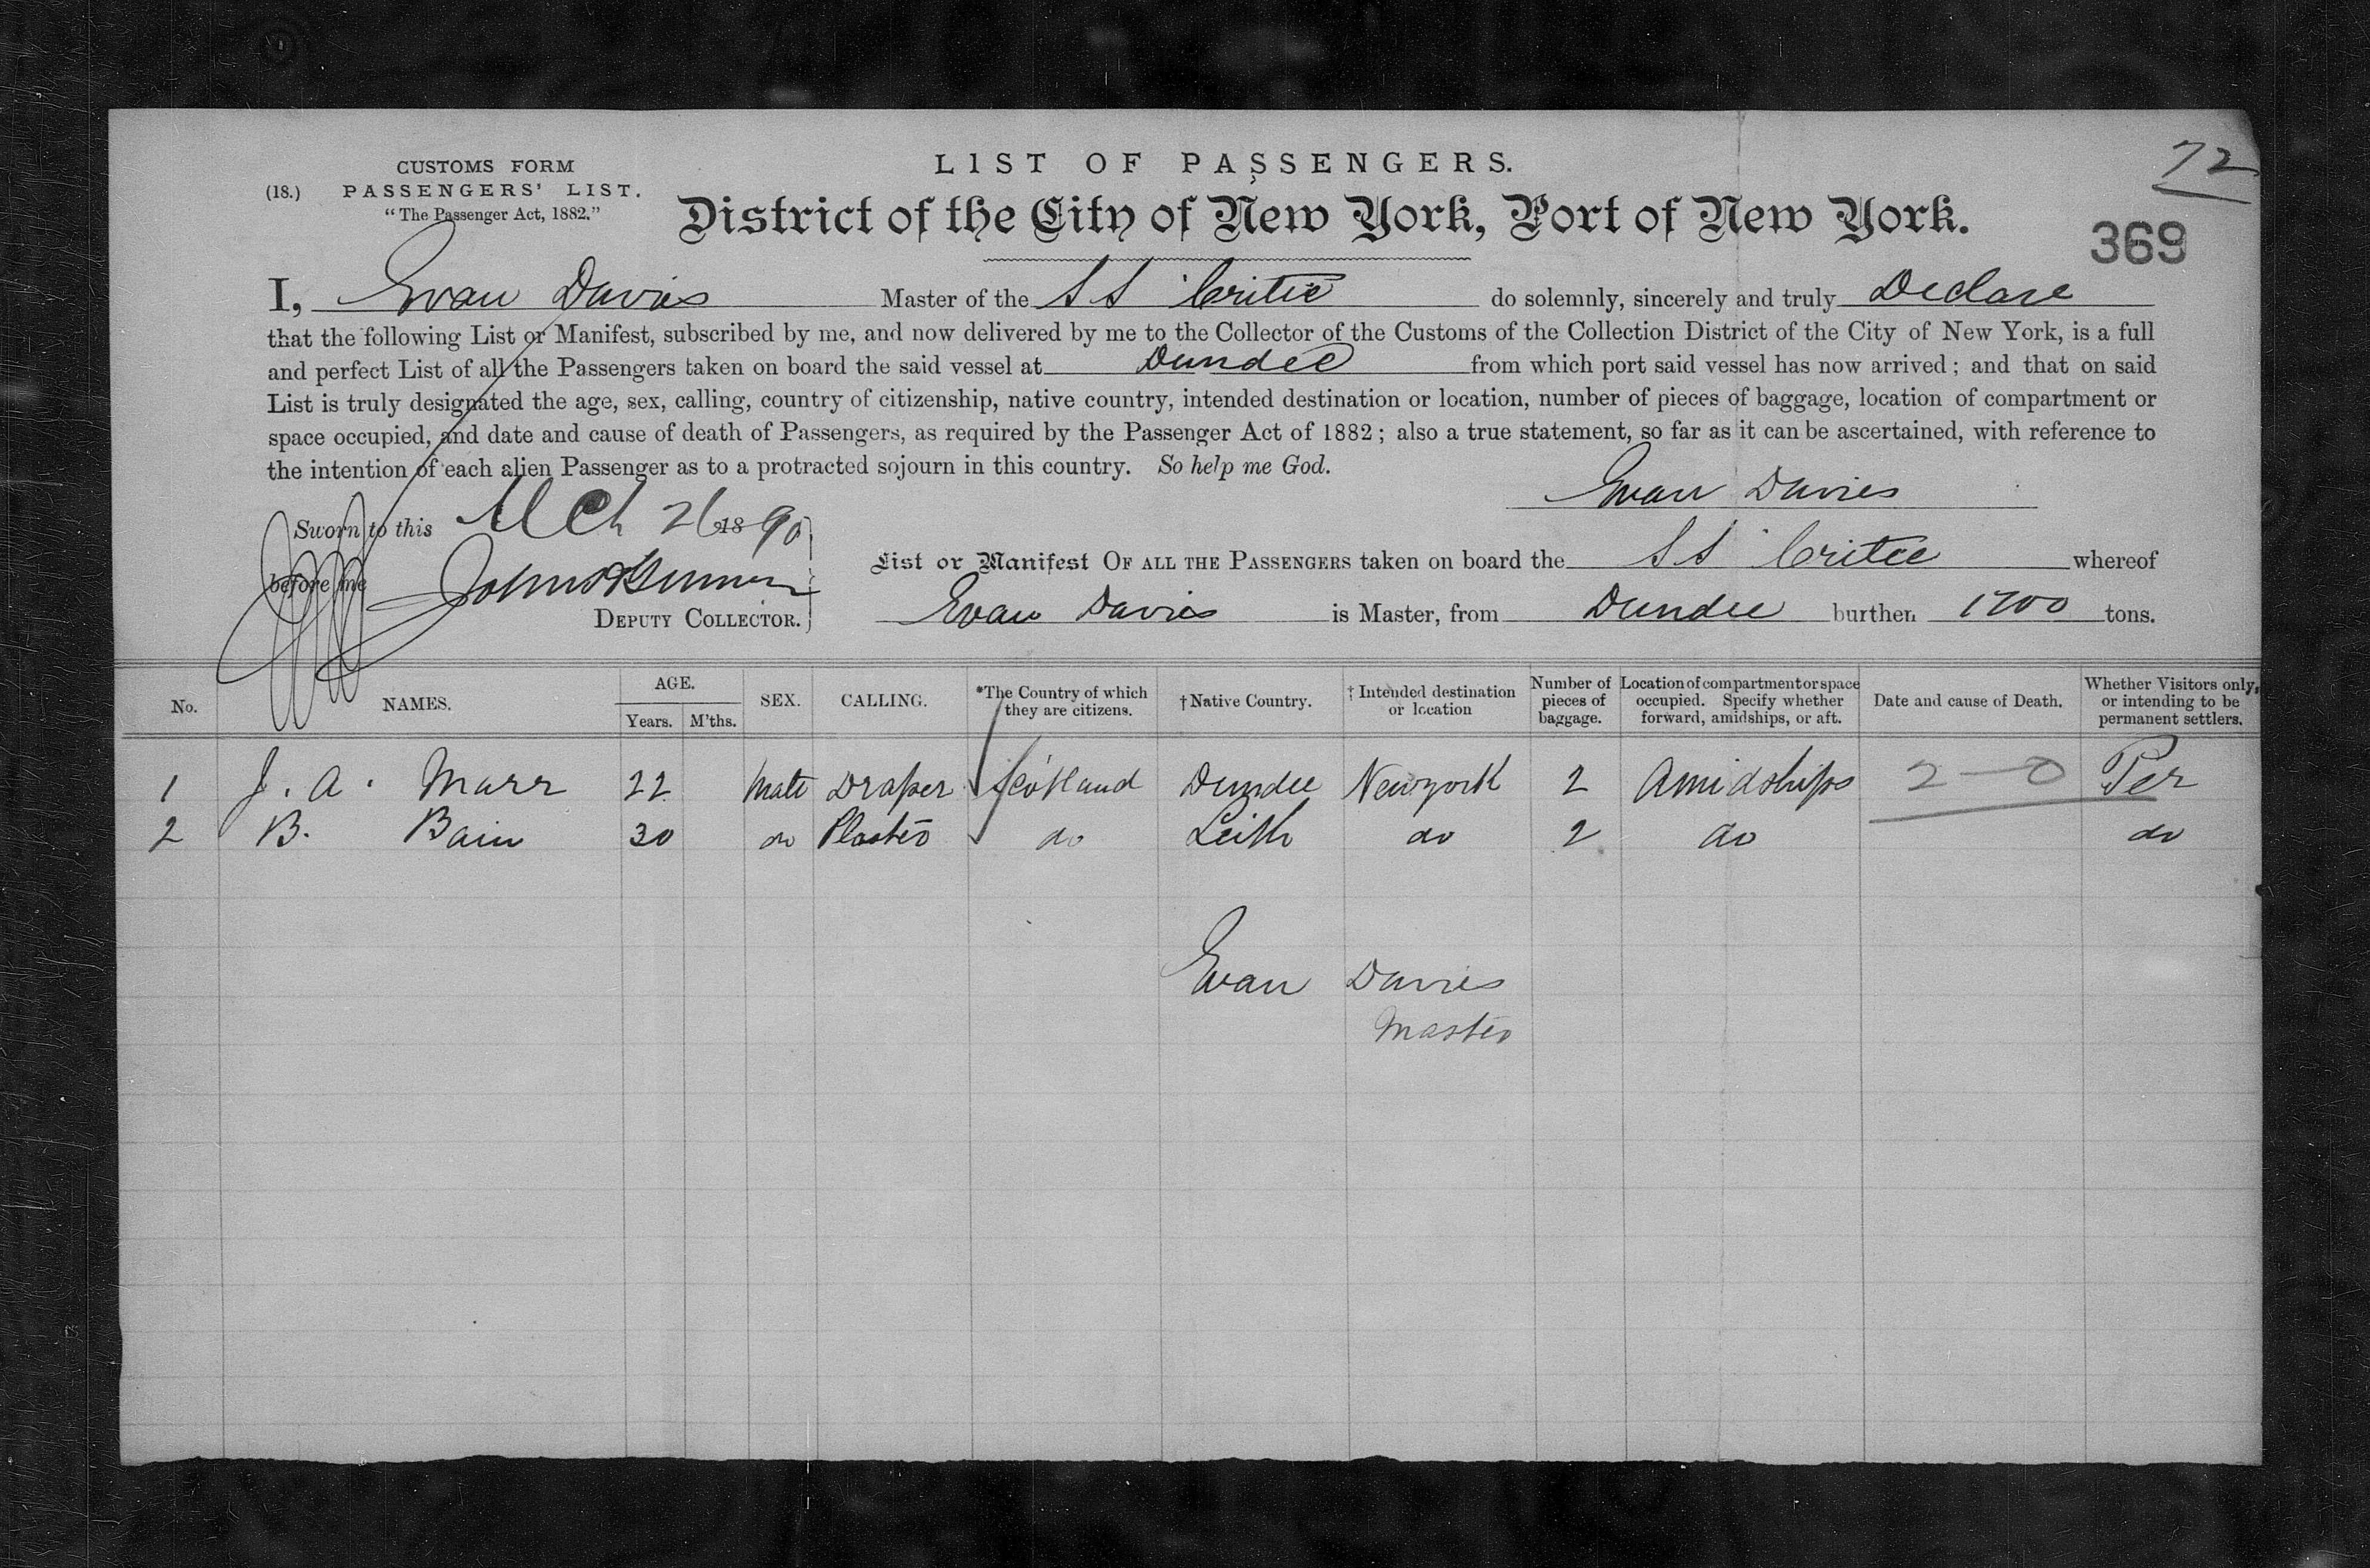 72
CUSTOMS FORM
(18.) PASSENGERS' LIST.
"The Passenger Act, 1882."
LIST OF PASSENGERS.
District of the City of New York, Port of New York.
369
I, Evan Davies Master of the SS Critic do solemnly, sincerely and truly Declare
that the following List or Manifest, subscribed by me, and now delivered by me to the Collector of the Customs of the Collection District of the City of New York, is a full
and perfect List of all the Passengers taken on board the said vessel at Dundee from which port said vessel has now arrived; and that on said
List is truly designated the age, sex, calling, country of citizenship, native country, intended destination or location, number of pieces of baggage, location of compartment or
space occupied, and date and cause of death of Passengers, as required by the Passenger Act of 1882; also a true statement, so far as it can be ascertained, with reference to
the intention of each alien Passenger as to a protracted sojourn in this country. So help me God.
Evan Davies
Sworn to this Mch 26 1890
before me John
DEPUTY COLLECTOR.
List or Manifest OF ALL THE PASSENGERS taken on board the SS Critic whereof
Evan Davies is Master, from Dundee burthen 1700 tons.
No. NAMES. AGE. Years. M'ths. SEX. CALLING. *The Country of which they are citizens. †Native Country. †Intended destination or location Number of pieces of baggage. Location of compartment or space occupied. Specify whether forward, amidships, or aft. Date and cause of Death. Whether Visitors only, or intending to be permanent settlers.
1 J. A. Marr 22 Male Draper Scotland Dundee Newyork 2 Amidships 2—0 Per
2 B. Bain 30 do do Leith do 2 do do
Evan Davies
Master